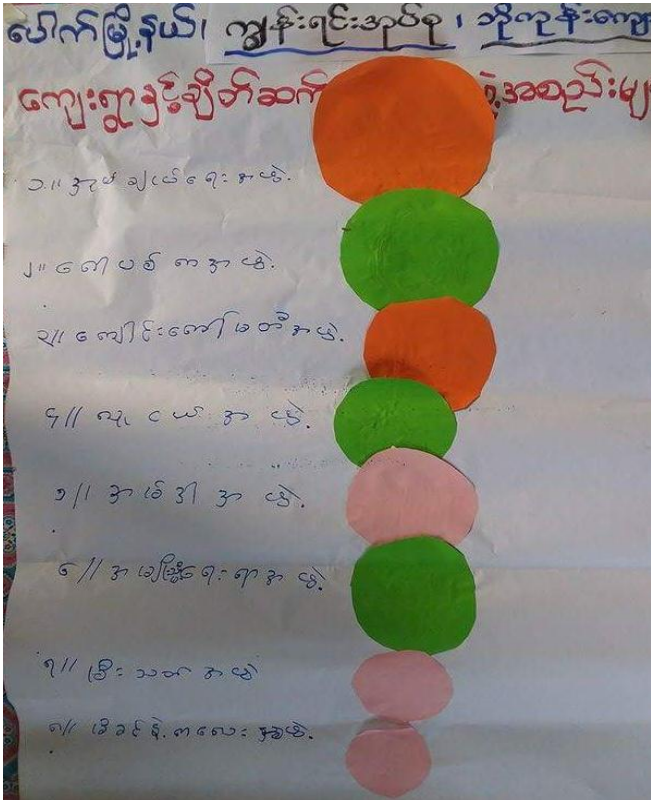 ပေါက်မြို့နယ်၊ ကျွန်းရင်းအုပ်စု၊ ဘိုကုန်းကျေ
ကျေးရွာနှင့်ချိတ်ဆက် ဖွဲ့အစည်းမျ
၁။ အုပ်ချုပ်ရေးအဖွဲ့.
၂။ အဖွဲ့.
၃။ ကျောင်းကော်မတီအဖွဲ့.
၄။ လူငယ်အဖွဲ့.
၅။ အဖွဲ့.
၆။ အမျိုးသမီးရေးရာအဖွဲ့.
၇။ မီးသတ်အဖွဲ့
၈။ မိခင်နှင့်ကလေးအဖွဲ့.